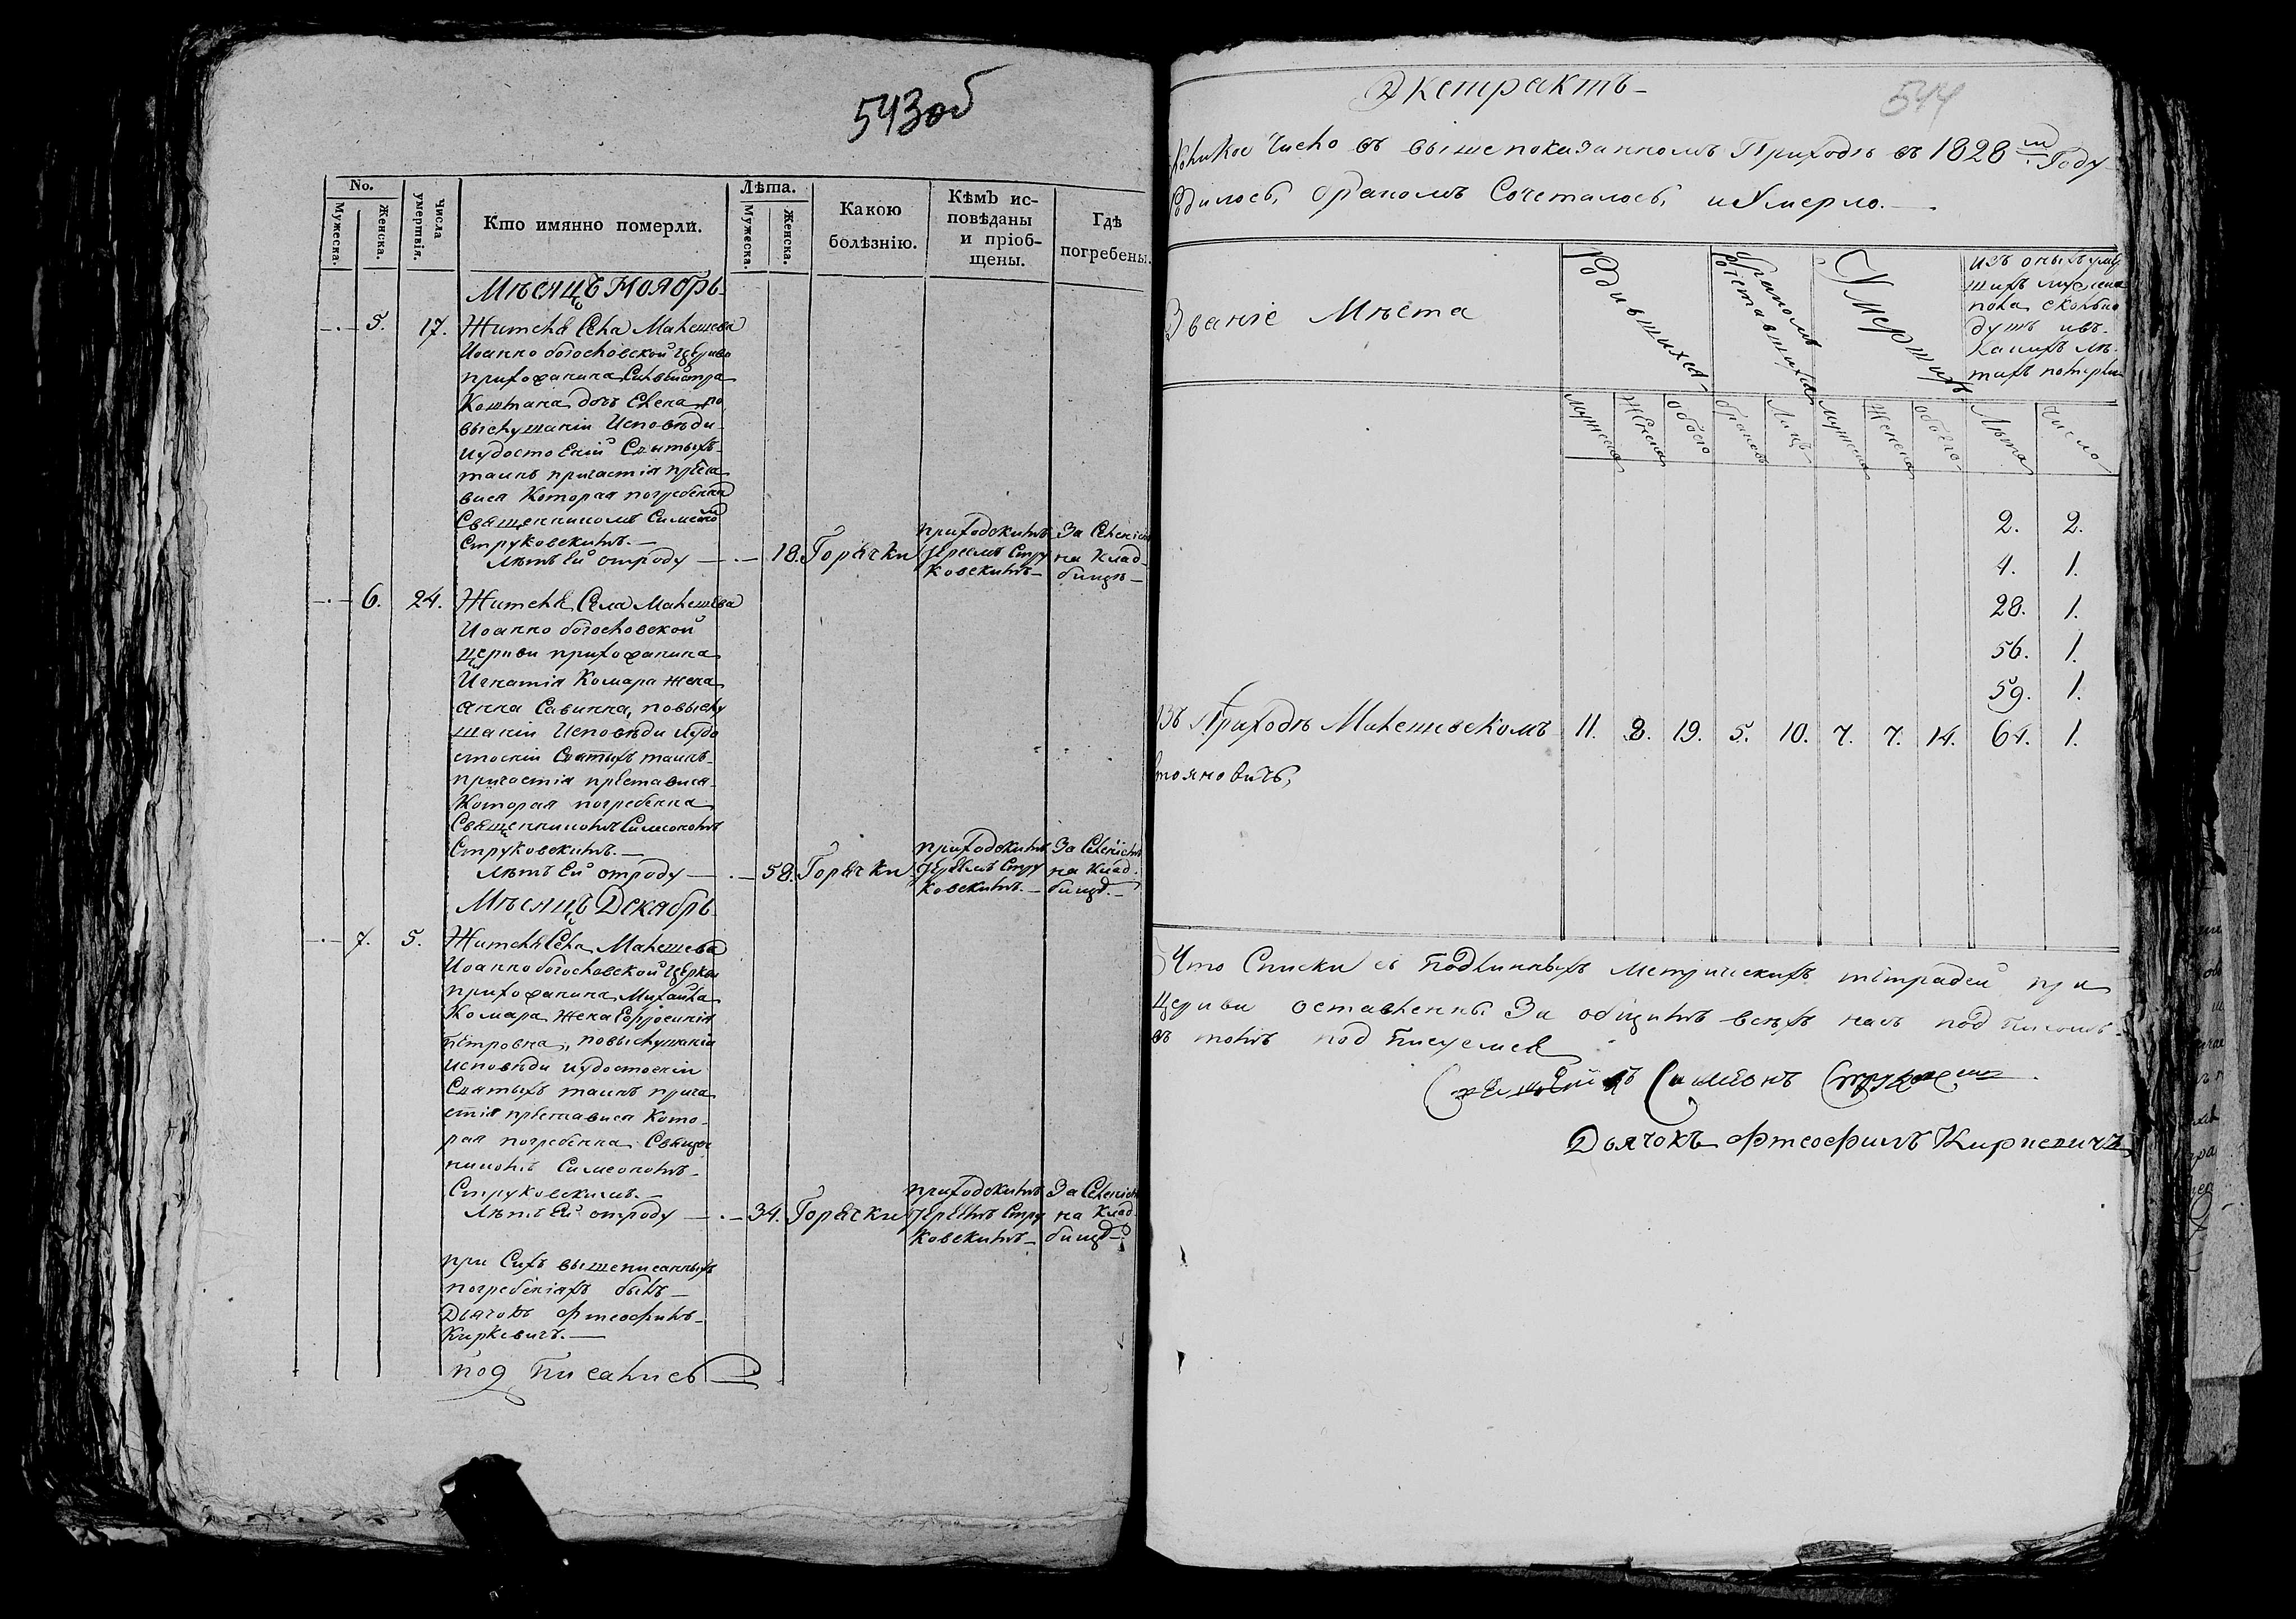 543об
No.
Мужеска.
Женска.
Числа умертвія.
Кто имянно померли.
Лѣта.
Мужеска.
Женска.
Какою болѣзнію.
Кѣмъ исповѣданы и пріобщены.
Гдѣ погребены.
Мѣсяцъ Ноябрь
5. 17. Жителя Села Малешева
Иоанно богословской Церкви
прихожанина Сильвестра
Коштана дочь Елена, по
выслушаніи Исповѣди
и удостоеніи Святыхъ
таинъ причастія преста
вися Которая погребенна
Священникомъ Симеоном
Струковскимъ.—
Лѣтъ Ей отроду — 18. Горячки
приходскимъ
Иереемъ Стру
ковскимъ—
За Селеніем
на Клад
бищѣ—
6. 24. Жителя Села Малешева
Иоанно богословской
Церкви прихожанина
Игнатія Комара жена
Анна Савинна, по выслу
шаніи Исповѣди и удо
стоеніи Святыхъ таинъ
причастія преставися
Которая погребенна
Священникомъ Симеономъ
Струковскимъ.—
Лѣтъ Ей отроду — 58. Горячки
приходскимъ
Иереемъ Стру
ковскимъ.—
За Селеніем
на Клад
бищѣ.—
Мѣсяцъ Декабрь
7. 5. Жителя Села Малешева
Иоанно богословской Церкви
прихожанина Михаила
Комара жена Евфросинія
Петровна, по выслушаніи
исповѣди и удостоеніи
Святыхъ таинъ прича
стія преставися Кото
рая погребенна Священ
никомъ Симеономъ
Струковскимъ.—
Лѣтъ Ей отроду — 34. Горячки
приходскимъ
Иереемъ Стру
ковскимъ—
За Селеніем
на Клад
бищѣ—
при Сихъ вышеписанныхъ
погребеніяхъ былъ—
Дьячокъ Фтеофилъ
Киркевичъ.—
под писались
544
Экстрактъ
Коликое Число въ вышепоказанномъ Приходѣ въ 1828м Году
Родилось, браком Сочеталось, и Умерло.—
Званіе Мѣста
Родившихся
браком сочетавшихся
Умершихъ
изъ оныхъ умер
шихъ мужеска
пола сколько
душъ и въ
Какихъ лѣ
тахъ померли
Мужеска
Женска
обоего
браковъ
Лицъ
Мужеска
Женска
обоего
Лѣта
Число
2. 2.
4. 1.
28. 1.
56. 1.
59. 1.
Въ Приходѣ Малешевскомъ 11. 8. 19. 5. 10. 7. 7. 14. 64. 1.
Что Списки съ Подлинныхъ Метрическихъ тетрадей при
Церкви оставленны За общимъ всѣхъ насъ под писомъ
въ томъ под Писуемся
Симеонъ
Дьячокъ Фтеофилъ Киркевичъ